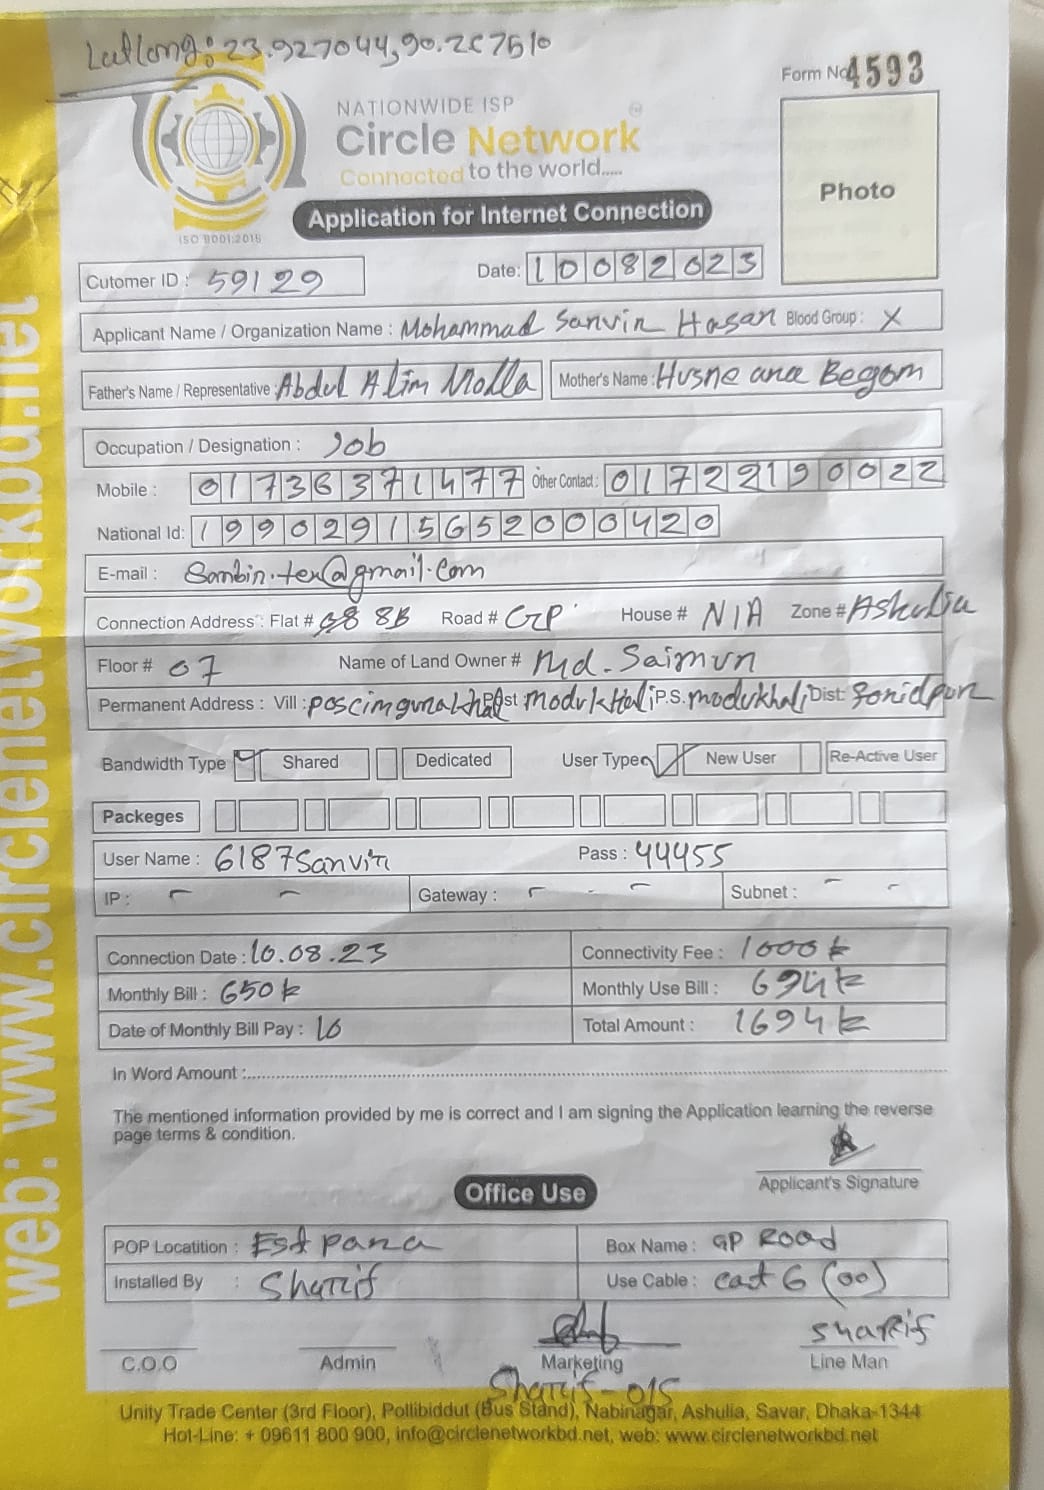 Latlong: 23.927044,90.2C7510
Form No 4593
NATIONWIDE ISP
Circle Network
Connected to the world.....
ISO 9001:2015
Application for Internet Connection
Photo
Cutomer ID : 59129
Date: 10082023
Applicant Name / Organization Name : Mohammad Sanvir Hasan Blood Group : X
Father's Name / Representative : Abdul Alim Molla Mother's Name : Husne ara Begom
Occupation / Designation : Job
Mobile : 01736371477 Other Contact : 01722190022
National Id: 19902915652000420
E-mail : Sanbin.tex@gmail.com
Connection Address : Flat # 8B Road # GP House # N/A Zone # Ashulia
Floor # 07 Name of Land Owner # Md. Saimun
Permanent Address : Vill : Post modukhali P.S. modukhali Dist: Foridpur
Bandwidth Type Shared Dedicated User Type New User Re-Active User
Packeges
User Name : 6187Sanvir Pass : 44455
IP : - - Gateway : - - - Subnet : - -
Connection Date : 10.08.23 Connectivity Fee : 1000 tk
Monthly Bill : 650 tk Monthly Use Bill : 694 tk
Date of Monthly Bill Pay : 10 Total Amount : 1694 tk
In Word Amount :
The mentioned information provided by me is correct and I am signing the Application learning the reverse
page terms & condition.
Applicant's Signature
Office Use
POP Locatition : Est para Box Name : GP Road
Installed By : Sharif Use Cable : Cat 6 (00)
Sharif
C.O.O Admin Marketing Line Man
Sharif-015
Unity Trade Center (3rd Floor), Pollibiddut (Bus Stand), Nabinagar, Ashulia, Savar, Dhaka-1344
Hot-Line: + 09611 800 900, info@circlenetworkbd.net, web: www.circlenetworkbd.net
web: www.circlenetworkbd.net